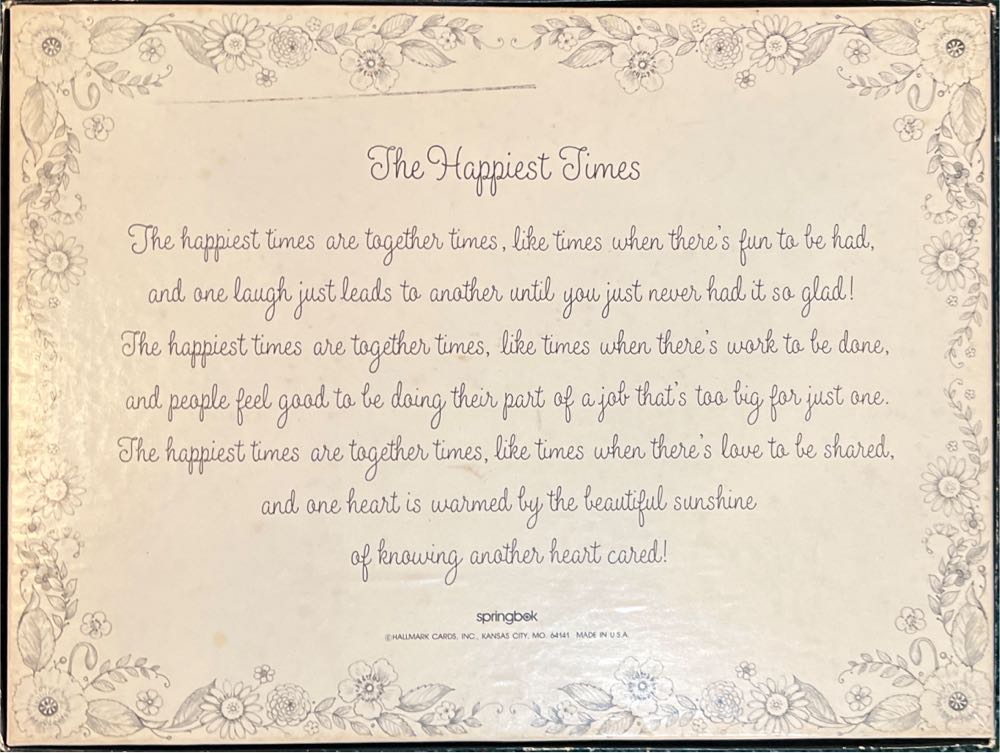 The Happiest Times
The happiest times are together times, like times when there's fun to be had,
and one laugh just leads to another until you just never had it so glad!
The happiest times are together times, like times when there's work to be done,
and people feel good to be doing their part of a job that's too big for just one.
The happiest times are together times, like times when there's love to be shared,
and one heart is warmed by the beautiful sunshine
of knowing another heart cared!
springbok
©HALLMARK CARDS, INC., KANSAS CITY, MO. 64141 MADE IN U.S.A.